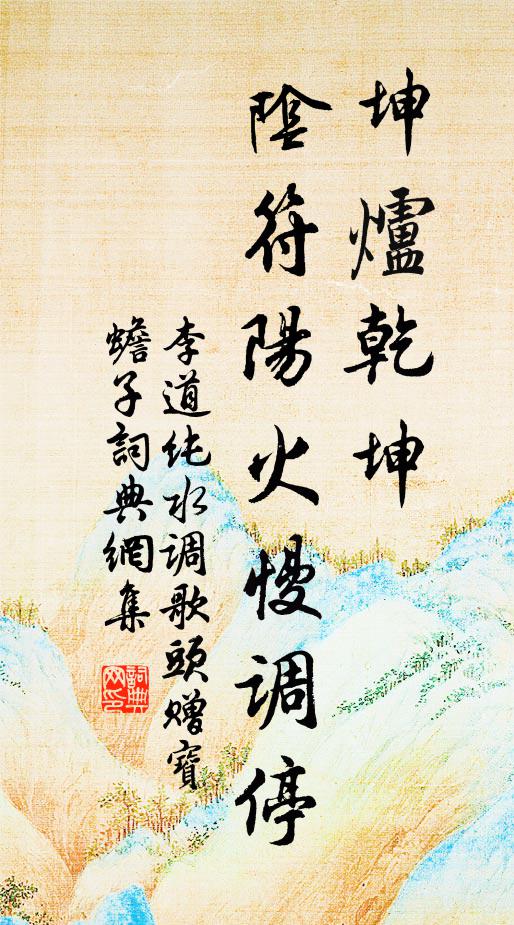 坤爐乾坤
陰符陽火慢調停
李道纯水调歌頭贈寶
蟾子詞典網集
詞典网印